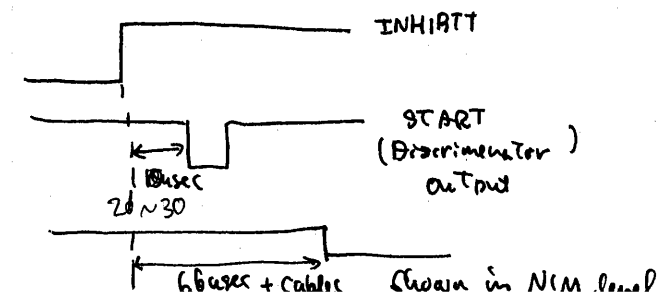 INHIBIT
START
(Discriminator)
output
20 ~ 30
+ cables Shown in NIM level